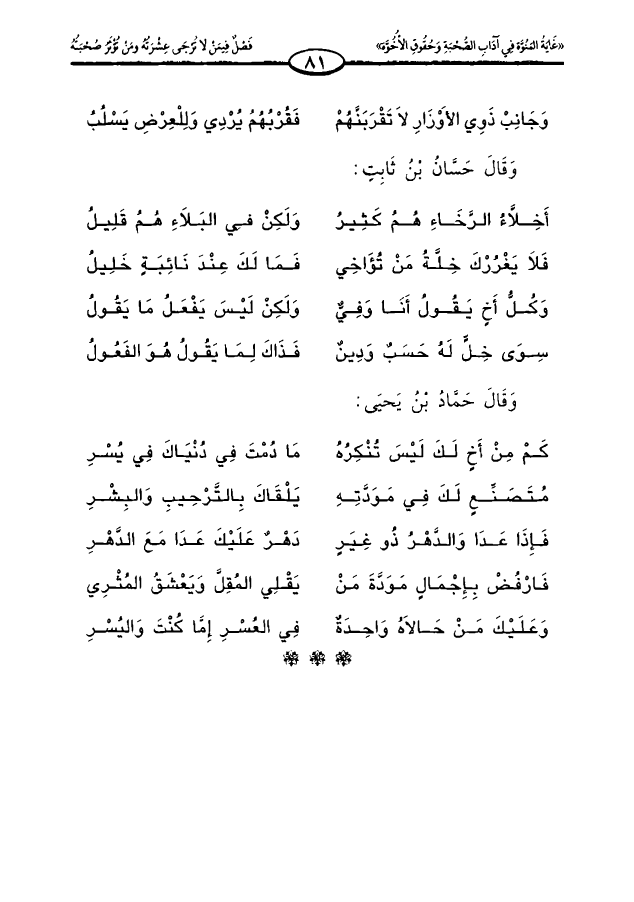 «غَايَةُ المَنُوَّة فِي آدَابِ الصُّحْبَةِ وَحُقُوقِ الأُخُوَّة» فَصْلٌ فِيمَنْ لا تُرْجَى عِشْرَتُهُ ومَنْ تُؤْثَرُ صُحْبَتُهُ
٨١
وَجَانِبْ ذَوِي الأَوْزَارِ لاَ تَقْرَبَنَّهُمْ فَقُرْبُهُمُ يُرْدِي وَلِلْعِرْضِ يَسْلُبُ
وَقَالَ حَسَّانُ بْنُ ثَابِتٍ :
أَخِلاَّءُ الرَّخَاءِ هُمُ كَثِيرُ وَلَكِنْ فِي البَلاَءِ هُمُ قَلِيلُ
فَلاَ يَغْرُرْكَ خِلَّةُ مَنْ تُؤَاخِي فَمَا لَكَ عِنْدَ نَائِبَةٍ خَلِيلُ
وَكُلُّ أَخٍ يَقُولُ أَنَا وَفِيٌّ وَلَكِنْ لَيْسَ يَفْعَلُ مَا يَقُولُ
سِوَى خِلٍّ لَهُ حَسَبٌ وَدِينٌ فَذَاكَ لِمَا يَقُولُ هُوَ الفَعُولُ
وَقَالَ حَمَّادُ بْنُ يَحيَى :
كَمْ مِنْ أَخٍ لَكَ لَيْسَ تُنْكِرُهُ مَا دُمْتَ فِي دُنْيَاكَ فِي يُسْرِ
مُتَصَنِّعٍ لَكَ فِي مَوَدَّتِهِ يَلْقَاكَ بِالتَّرْحِيبِ وَالبِشْرِ
فَإِذَا عَدَا وَالدَّهْرُ ذُو غِيَرٍ دَهْرٌ عَلَيْكَ عَدَا مَعَ الدَّهْرِ
فَارْفُضْ بِإِجْمَالٍ مَوَدَّةَ مَنْ يَقْلِي المُقِلَّ وَيَعْشَقُ المُثْرِي
وَعَلَيْكَ مَنْ حَالاَهُ وَاحِدَةٌ فِي العُسْرِ إِمَّا كُنْتَ وَاليُسْرِ